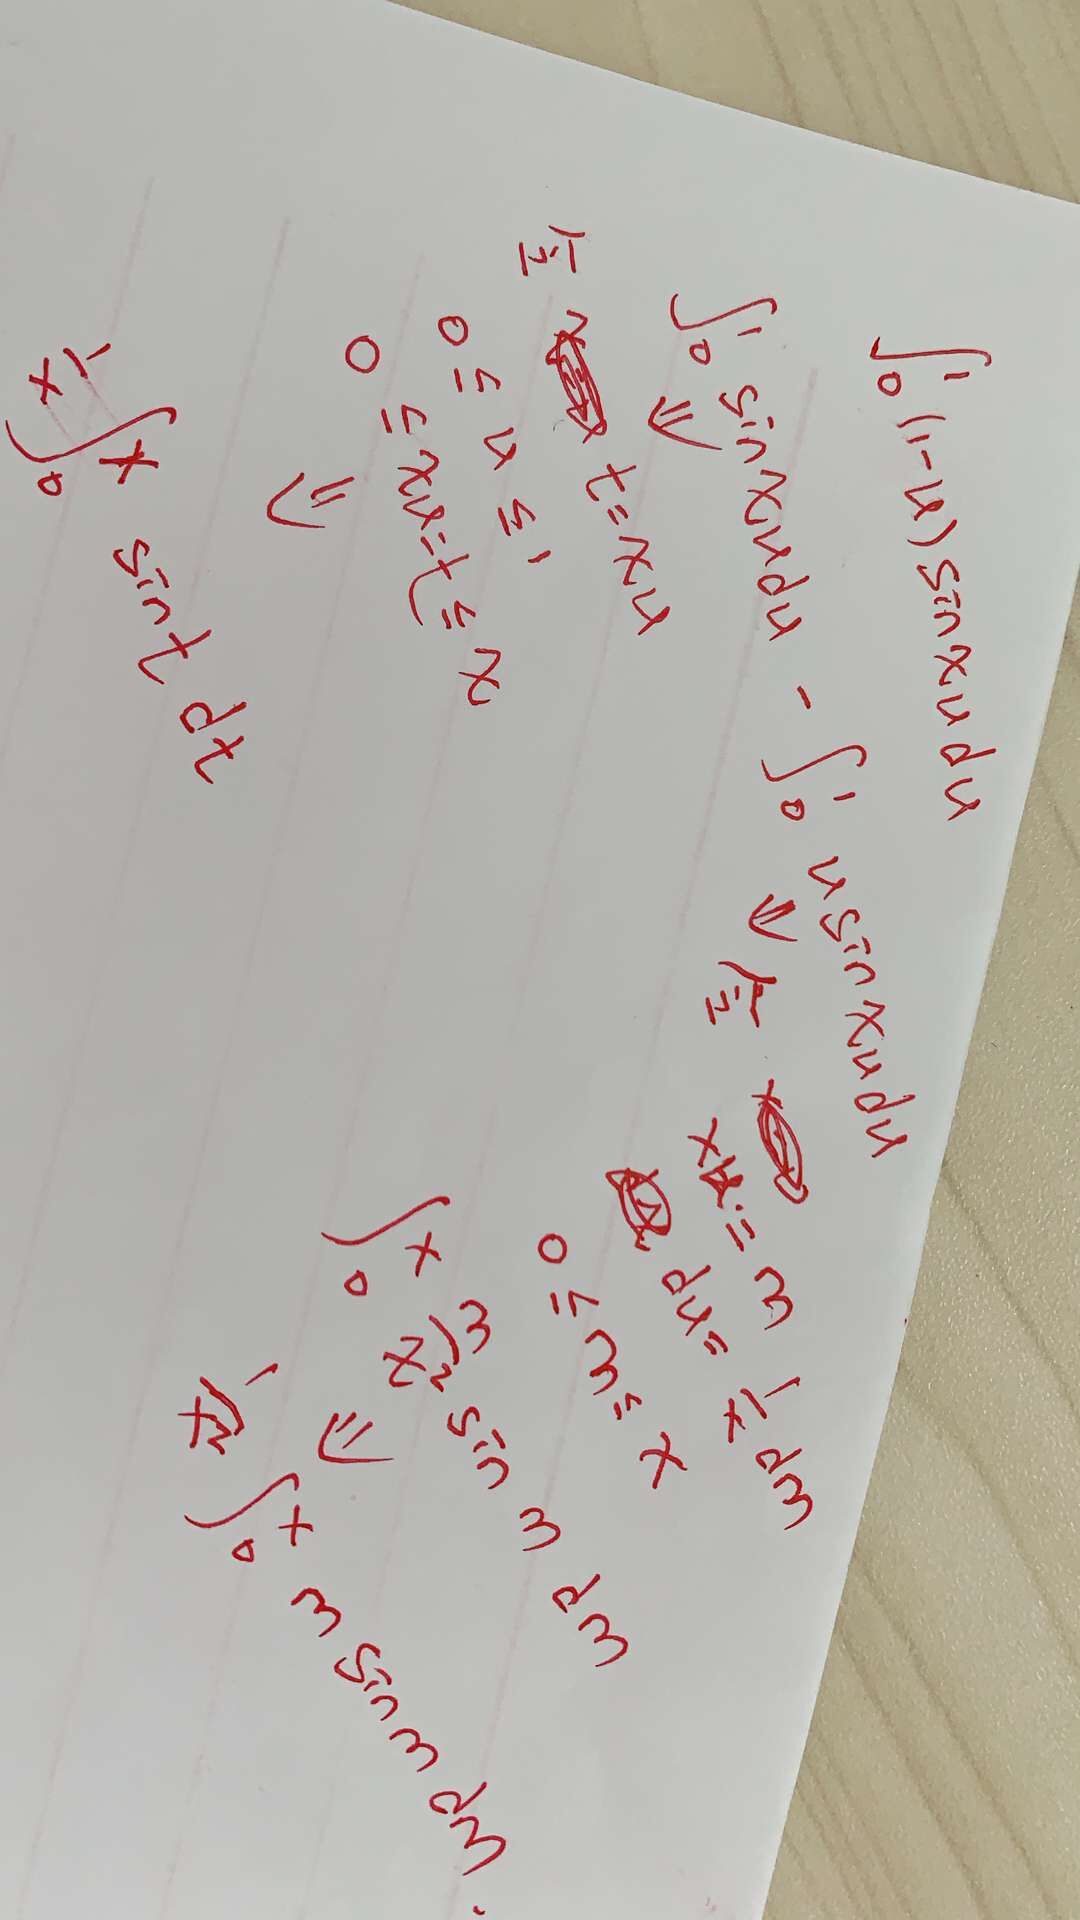 ∫₀¹ (1-u) sin xu du
∫₀¹ sin xu du - ∫₀¹ u sin xu du
⇓
令 t = xu
0 ≤ u ≤ 1
0 ≤ xu = t ≤ x
⇓
1/x ∫₀ˣ sin t dt
⇓ 令
xu = m
du = 1/x dm
0 ≤ m ≤ x
∫₀ˣ m/x² sin m dm
⇓
1/x² ∫₀ˣ m sin m dm.